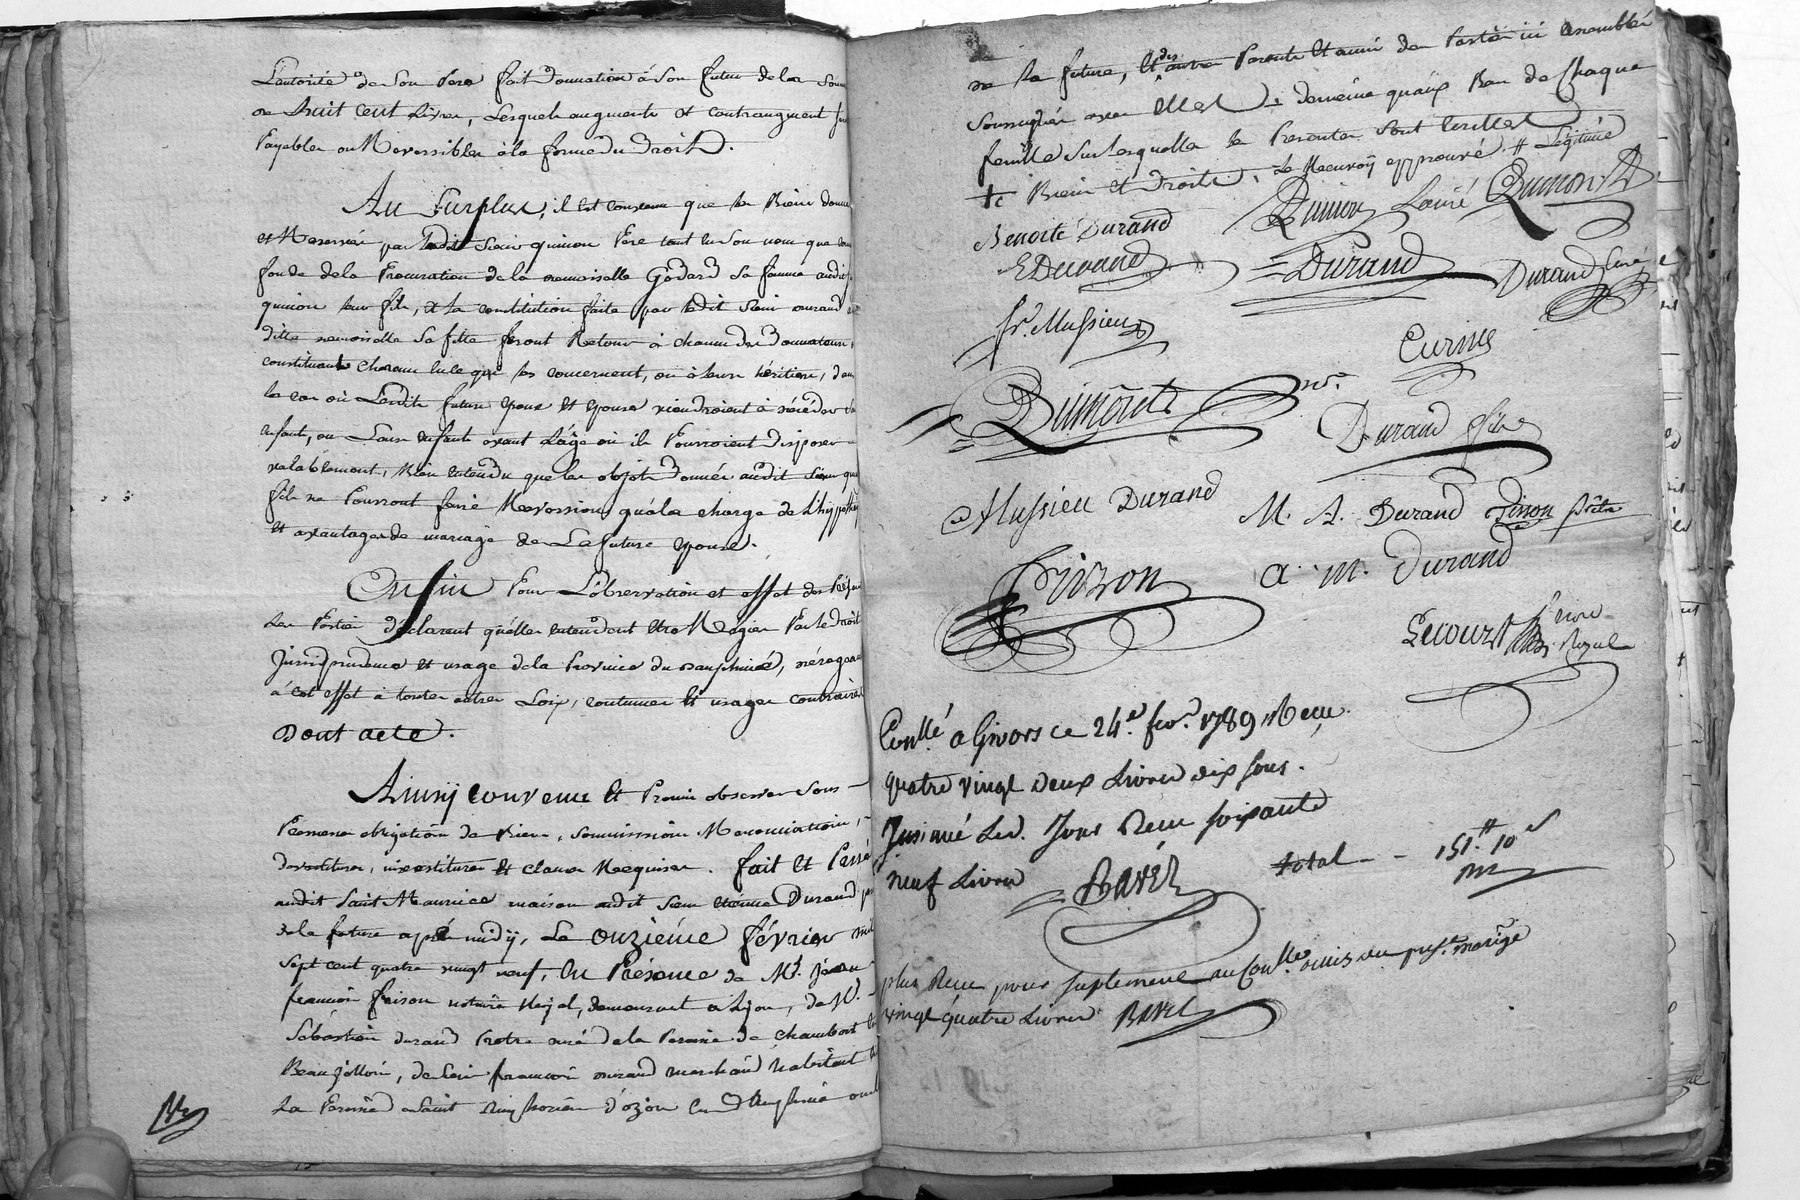 L'autorité de son Pere fait donnation à son futur de la somme
de huit cent Livres, Lesquels augments et contraugment
Payables ou Reversibles à la forme du droit.
Au surplus, il est convenu que les Biens donnés
et Reservés par ledit Sieur quinon Pere tant en son nom que
fondé de la Procuration de la demoiselle Godard sa femme audit
quinon leur fils, et la constitution faite par ledit Sieur durand
ditte demoiselle sa fille feront Retour à chacun des donnateurs
constituant chacun en ce qui les concernent, ou à leurs héritiers, dans
le cas où Lesdits futurs epoux et epouse viendroient à décéder sans
enfants, ou Leurs enfants avant L'âge où ils Pourroient disposer
valablement, Bien entendu que les objets donnés audit Sieur
fils ne Pourront faire Reversion qu'à la charge de L'hippotheque
et avantages de mariage de La future epouse.
Enfin Pour L'observation et effet des Présentes
Les Parties déclarent qu'elles entendent etre Regies Par le droit
Jurisprudence et usage de la Province du dauphiné, dérogeant
à cet effet à toutes autres Loix, coutumes et usages contraires
Dont acte.
Ainsy convenu et Promis observer Sous
Peines obligation de Biens, soumissions Renonciation,
devestiture, investiture et clauses Requises. fait et Passé
audit Saint Maurice maison dudit Sieur etienne Durand
de la future après midy, Le onzième février mil
sept cent quatre vingt neuf, En Présence de Mr. Jean
françois frison notaire Royal, demeurant à Lyon, de Mr.
Sébastien durand Pretre curé de la Paroisse de chambost en
Beaujollois, de Sieur françois durand marchand habitant
La Paroisse de Saint Simphorien d'ozon en Dauphiné
de la future, et des autres Parents et amis des Parties ici assemblés
soussignés avec Elles de meme qu'aux Bas de Chaque
feuille sur lesquelles les Presentes sont Ecrittes
Biens et droits, Le Renvoy approuvé # Legitime
Benoite Durand
Quinon Lainé Dumont
E Durand
Durand
Durand curé
fr. Mussieux
Eurine
Dumont nre.
Durand fils
Mussieu Durand
M. A. Durand
Pinon Prêtre
Frizon
a. m. Durand
Lecourt
Royal
Conllé à Givors ce 24e. fevr. 1789 Recu
quatre vingt deux Livres dix sous.
Insinué Led. Jour Recu soixante
neuf Livres
BAVEL
total - - 151.tt 10s
plus Recu pour suplement au Conlle omis au pnt. mariage
vingt quatre Livres BAVEL